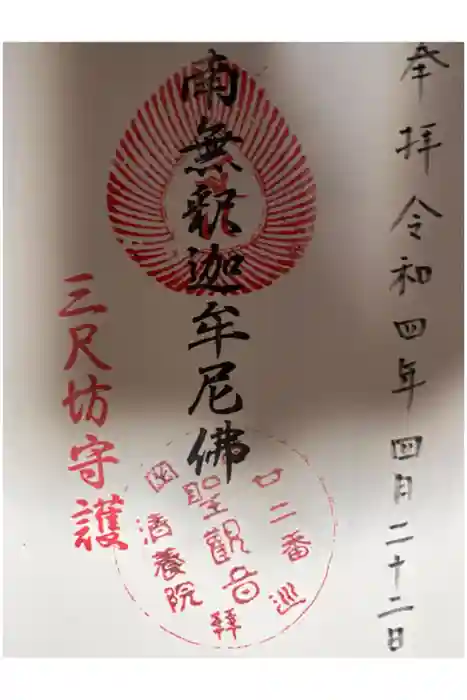 奉拝 令和四年四月二十二日
南無釈迦牟尼佛
三尺坊守護
廿二番巡拝
聖観音
清養院